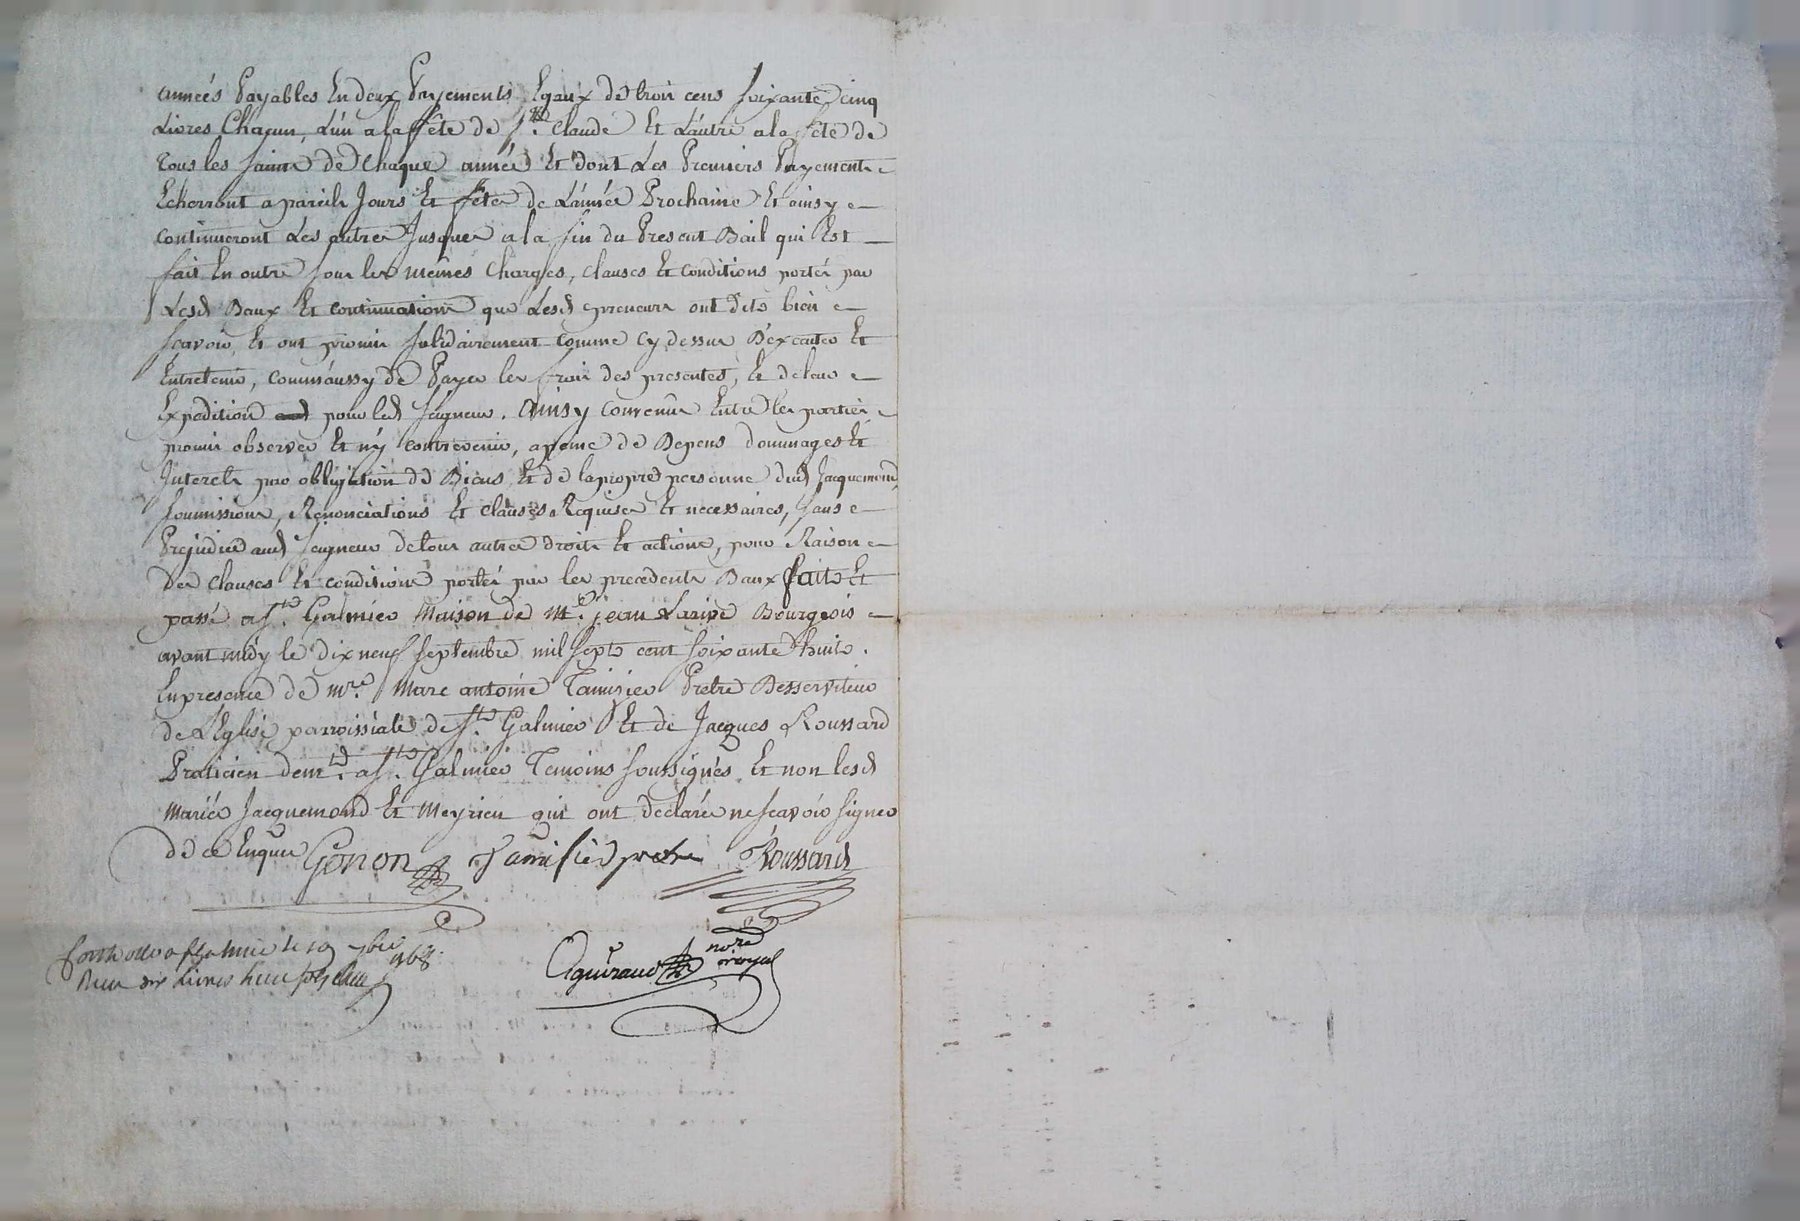 années Payables En deux Payements Egaux de trois cens soixante cinq
Livres Chacun, L'un a la fête de St. Claude Et L'autre a la fete de
tous les saints de chaque année Et dont Les Premiers Payements
Echerront a pareils Jours Et fêtes de L'année Prochaine Et ainsy
continueront Les autres Jusques a la fin du Present Bail qui Est
fait En outre sous les mêmes Charges, clauses Et conditions portés par
Lesd Baux Et continuations que Lesd preneurs ont dits bien
scavoir, Et ont promis solidairement comme cy dessus D'executer Et
Entretenir, comm'aussy de Payer les frais des presentes, Et de leur
Expedition pour led seigneur. Ainsy convenu Entre les parties
promis observer Et n'y contrevenir, a peine de Depens dommages Et
Interets par obligation de Biens Et de la propre personne dud Jacquemond,
soumissions, Renonciations Et clauses Requises Et necessaires, sans
Prejudice aud seigneur de tous autres droits Et actions, pour Raison
des clauses Et conditions portés par les precedents Baux faits Et
passé a St. Galmier Maison de Mr. jean Larive Bourgeois
avant midy le dix neuf septembre mil sept cent soixante huit.
En presence de mre. Marc antoine Tamisier Pretre Desserviteur
de L'Eglise parroissiale de St. Galmier Et de Jacques Roussard
Praticien demt. a St. Galmier Temoins soussignés Et non lesd
mariés Jacquemond Et Meyrieu qui ont declarés ne scavoir signer
de ce Enquis Gonon Tamisier pretre Roussard
notre
royal
a st galmier le 19 7bre 1768
Recu dix Livres huit sols